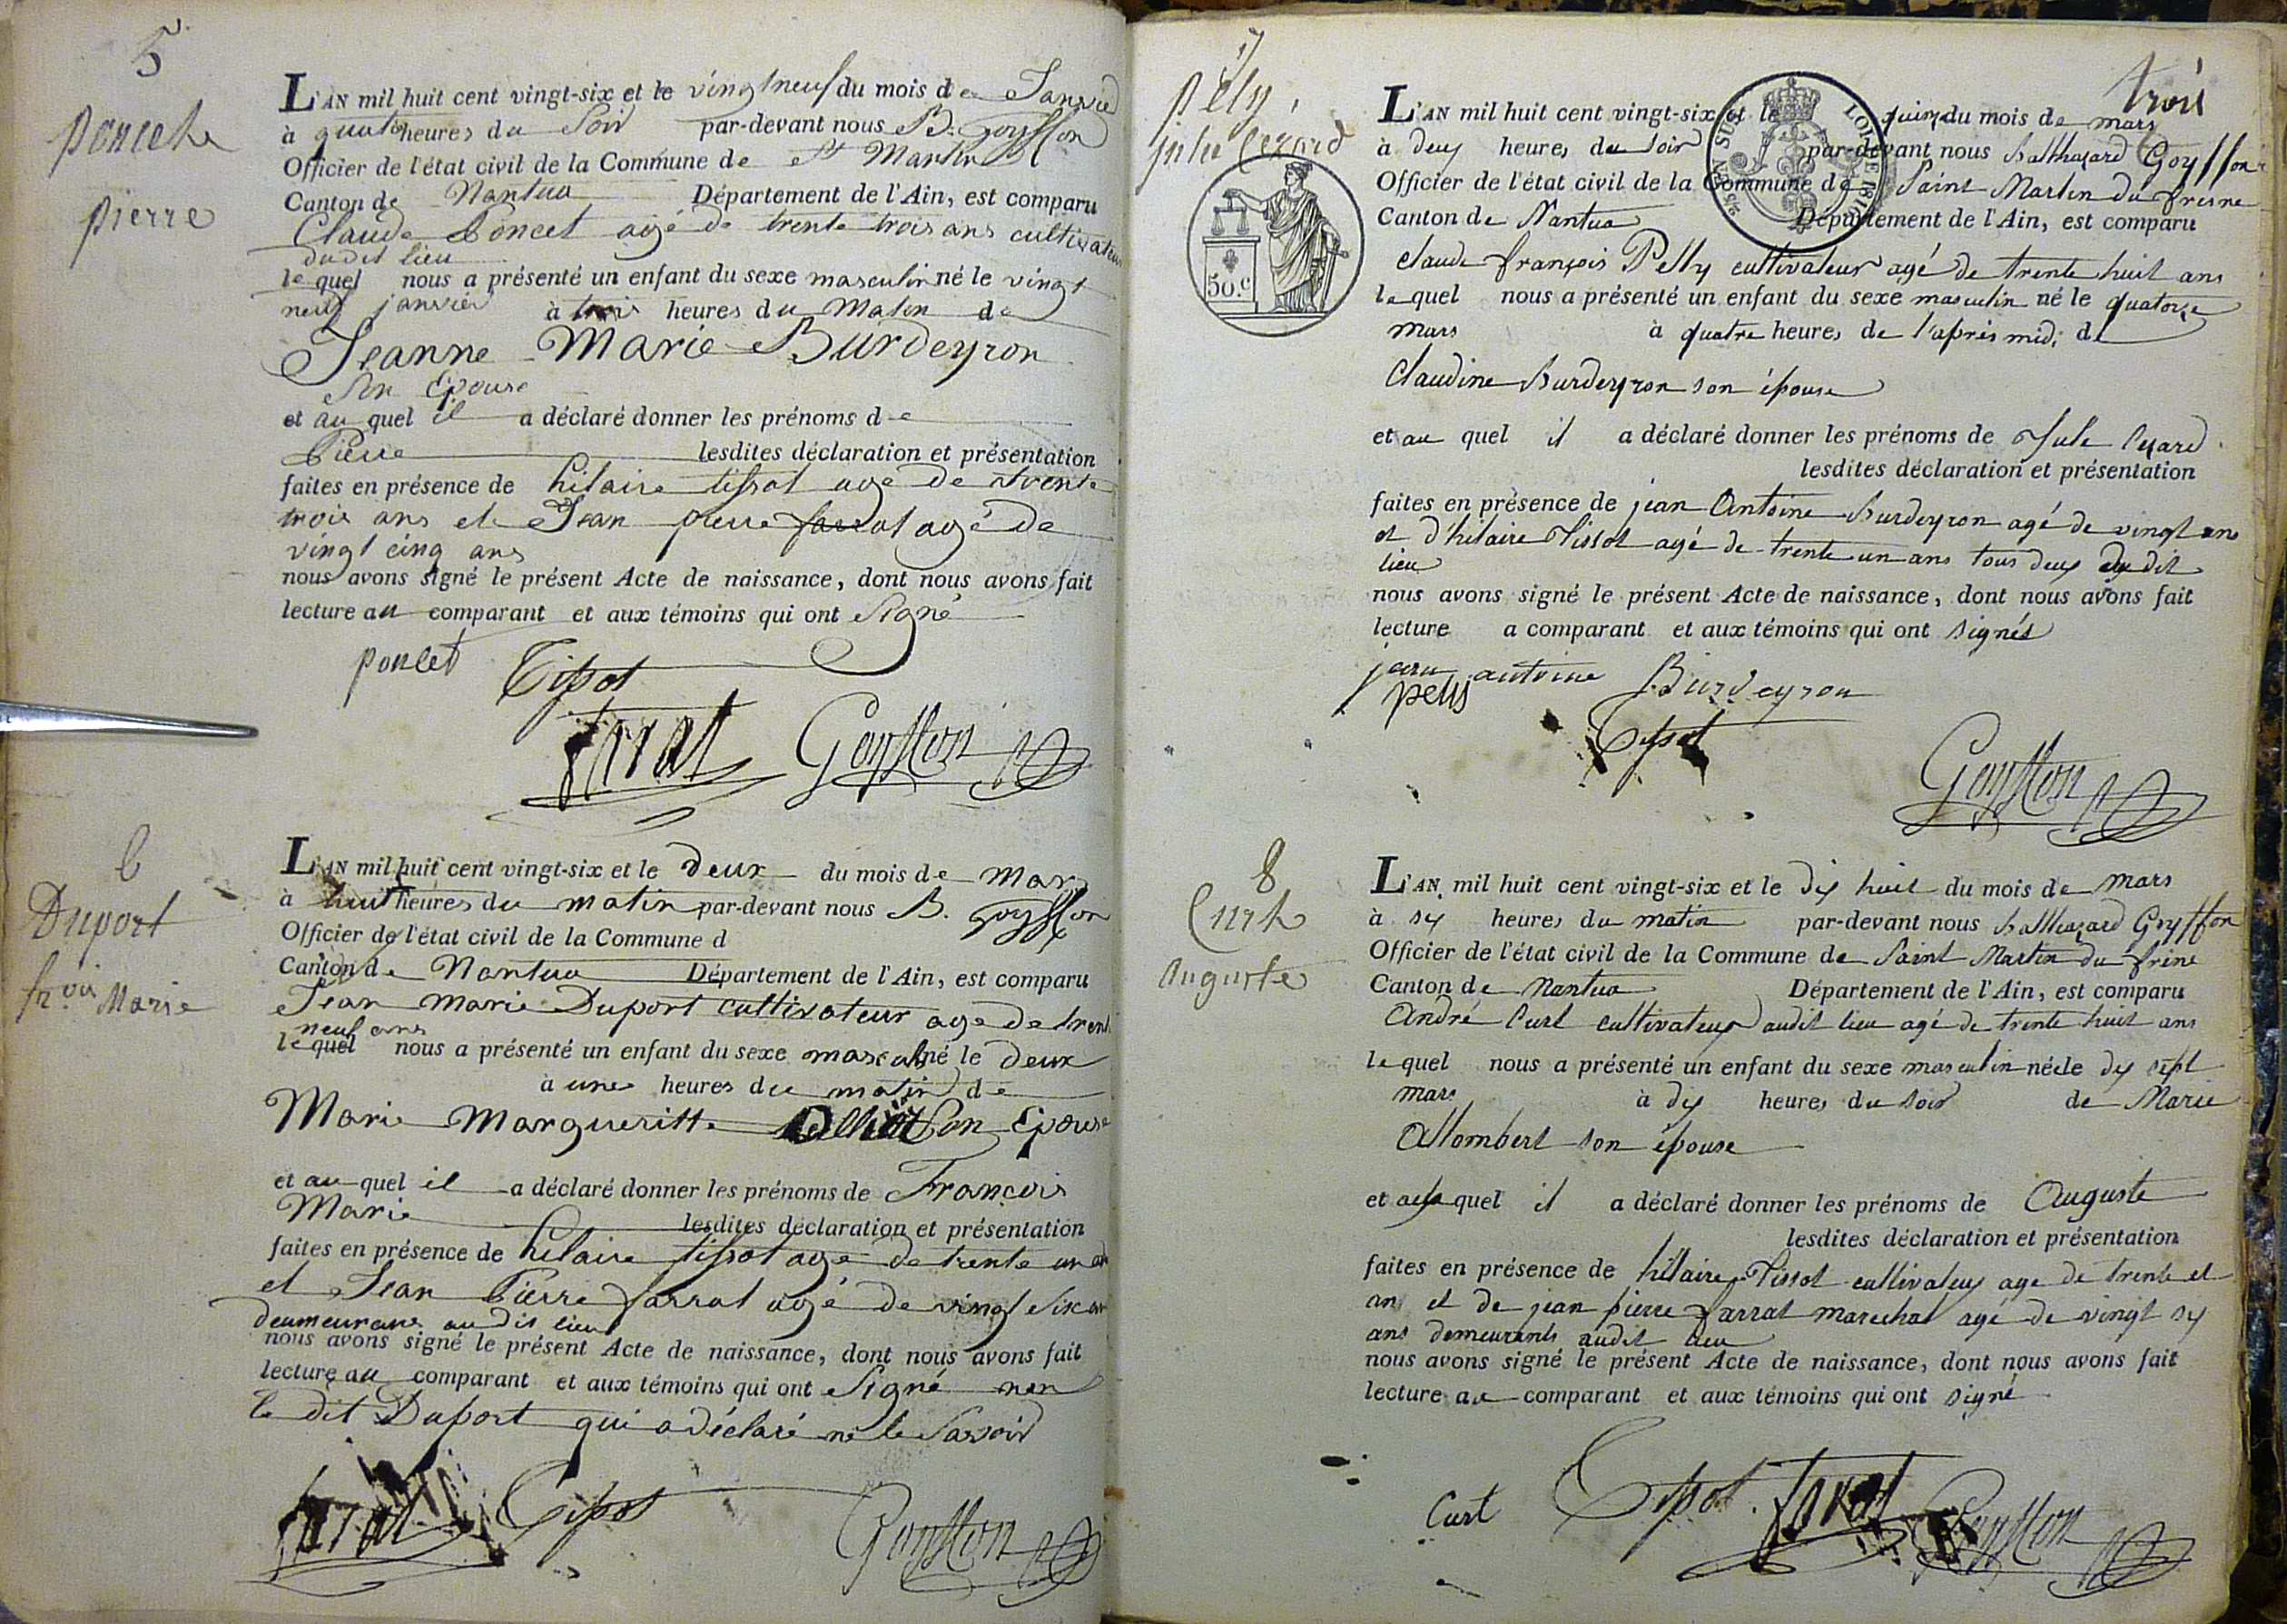 5
poncet
pierre
L'AN mil huit cent vingt-six et le vingt neuf du mois de Janvier
à quatre heures du Soir par-devant nous B. Goyffon
Officier de l'état civil de la Commune de St Martin
Canton de Nantua Département de l'Ain, est comparu
Claude Poncet agé de trente trois ans cultivateur
dudit lieu
lequel nous a présenté un enfant du sexe masculin né le vingt
neuf janvier à trois heures du Matin de
Jeanne Marie Burdeyron
Son Epouse
et au quel il a déclaré donner les prénoms de
Pierre lesdites déclaration et présentation
faites en présence de hilaire tissot agé de trente
trois ans et Jean pierre farrat agé de
vingt cinq ans
nous avons signé le présent Acte de naissance, dont nous avons fait
lecture au comparant et aux témoins qui ont Signé
poncet Tissot
farrat Goyffon
6
Duport
fr.ois Marie
L'AN mil huit cent vingt-six et le Deux du mois de Mars
à huit heures du matin par-devant nous B. Goyffon
Officier de l'état civil de la Commune d
Canton de Nantua Département de l'Ain, est comparu
Jean Marie Duport cultivateur age de trente
neuf ans
lequel nous a présenté un enfant du sexe masculin né le Deux
à une heures du matin de
Marie Margueritte Son Epouse
et au quel il a déclaré donner les prénoms de François
Marie lesdites déclaration et présentation
faites en présence de hilaire tissot age de trente un ans
et Jean Pierre farrat agé de vingt six ans
deumeurans audit lieu
nous avons signé le présent Acte de naissance, dont nous avons fait
lecture au comparant et aux témoins qui ont Signé non
le dit Duport qui a déclaré ne le Savoir
farrat Tissot Goyffon
trois
7
pely,
jule cezard
50.c
L'AN mil huit cent vingt-six et le quinze du mois de mars
à deux heures du soir par-devant nous balthazard Goyffon
Officier de l'état civil de la Commune de Saint Martin du fresne
Canton de Nantua Département de l'Ain, est comparu
claude françois Pelly cultivateur agé de trente huit ans
lequel nous a présenté un enfant du sexe masculin né le quatorze
mars à quatre heures de l'après midi de
Claudine Burdeyron son épouse
et au quel il a déclaré donner les prénoms de Jule Cezard
lesdites déclaration et présentation
faites en présence de jean Antoine Burdeyron agé de vingt ans
et d'hilaire Tissot agé de trente un ans tous deux dudit
lieu
nous avons signé le présent Acte de naissance, dont nous avons fait
lecture a comparant et aux témoins qui ont signés
jean antoine Burdeyron
pelly
Tissot
Goyffon
8
Curt
Auguste
L'AN mil huit cent vingt-six et le dix huit du mois de mars
à six heures du matin par-devant nous balthazard Goyffon
Officier de l'état civil de la Commune de Saint Martin du frêne
Canton de Nantua Département de l'Ain, est comparu
André Curt cultivateur audit lieu agé de trente huit ans
lequel nous a présenté un enfant du sexe masculin né le dix sept
mars à dix heures du soir de Marie
Allombert son épouse
et au quel il a déclaré donner les prénoms de Auguste
lesdites déclaration et présentation
faites en présence de hilaire Tissot cultivateur age de trente et
an et de jean pierre farrat marechal agé de vingt six
ans demeurants audit lieu
nous avons signé le présent Acte de naissance, dont nous avons fait
lecture au comparant et aux témoins qui ont signé
Curt Tissot farrat Goyffon